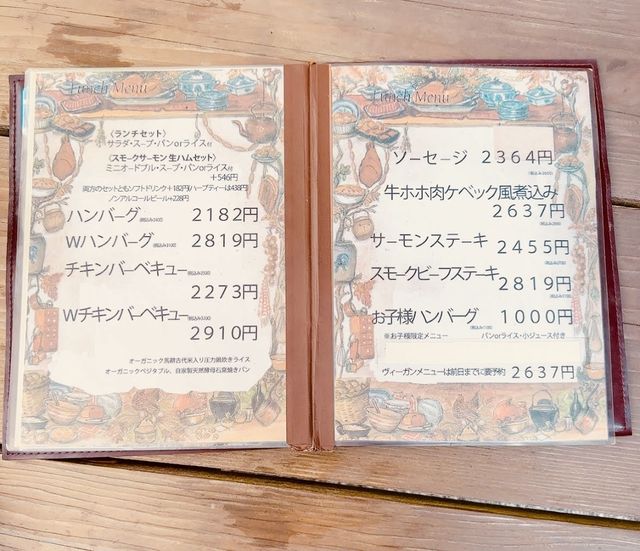 Lunch Menu
〈ランチセット〉
サラダ・スープ・パンorライス付
〈スモークサーモン生ハムセット〉
ミニオードブル・スープ・パンorライス付
+546円
両方のセットともソフトドリンク+182円ハーブティーは438円
ノンアルコールビール+228円
ハンバーグ 2182円
Wハンバーグ 2819円
チキンバーベキュー
2273円
Wチキンバーベキュー
2910円
オーガニック黒耕古代米入り圧力鍋炊きライス
オーガニックベジタブル、自家製天然酵母石窯焼きパン
Lunch Menu
ソーセージ 2364円
牛ホホ肉ケベック風煮込み
2637円
サーモンステーキ 2455円
スモークビーフステーキ
2819円
お子様ハンバーグ 1000円
※お子様限定メニュー パンorライス・小ジュース付き
ヴィーガンメニューは前日までに要予約 2637円